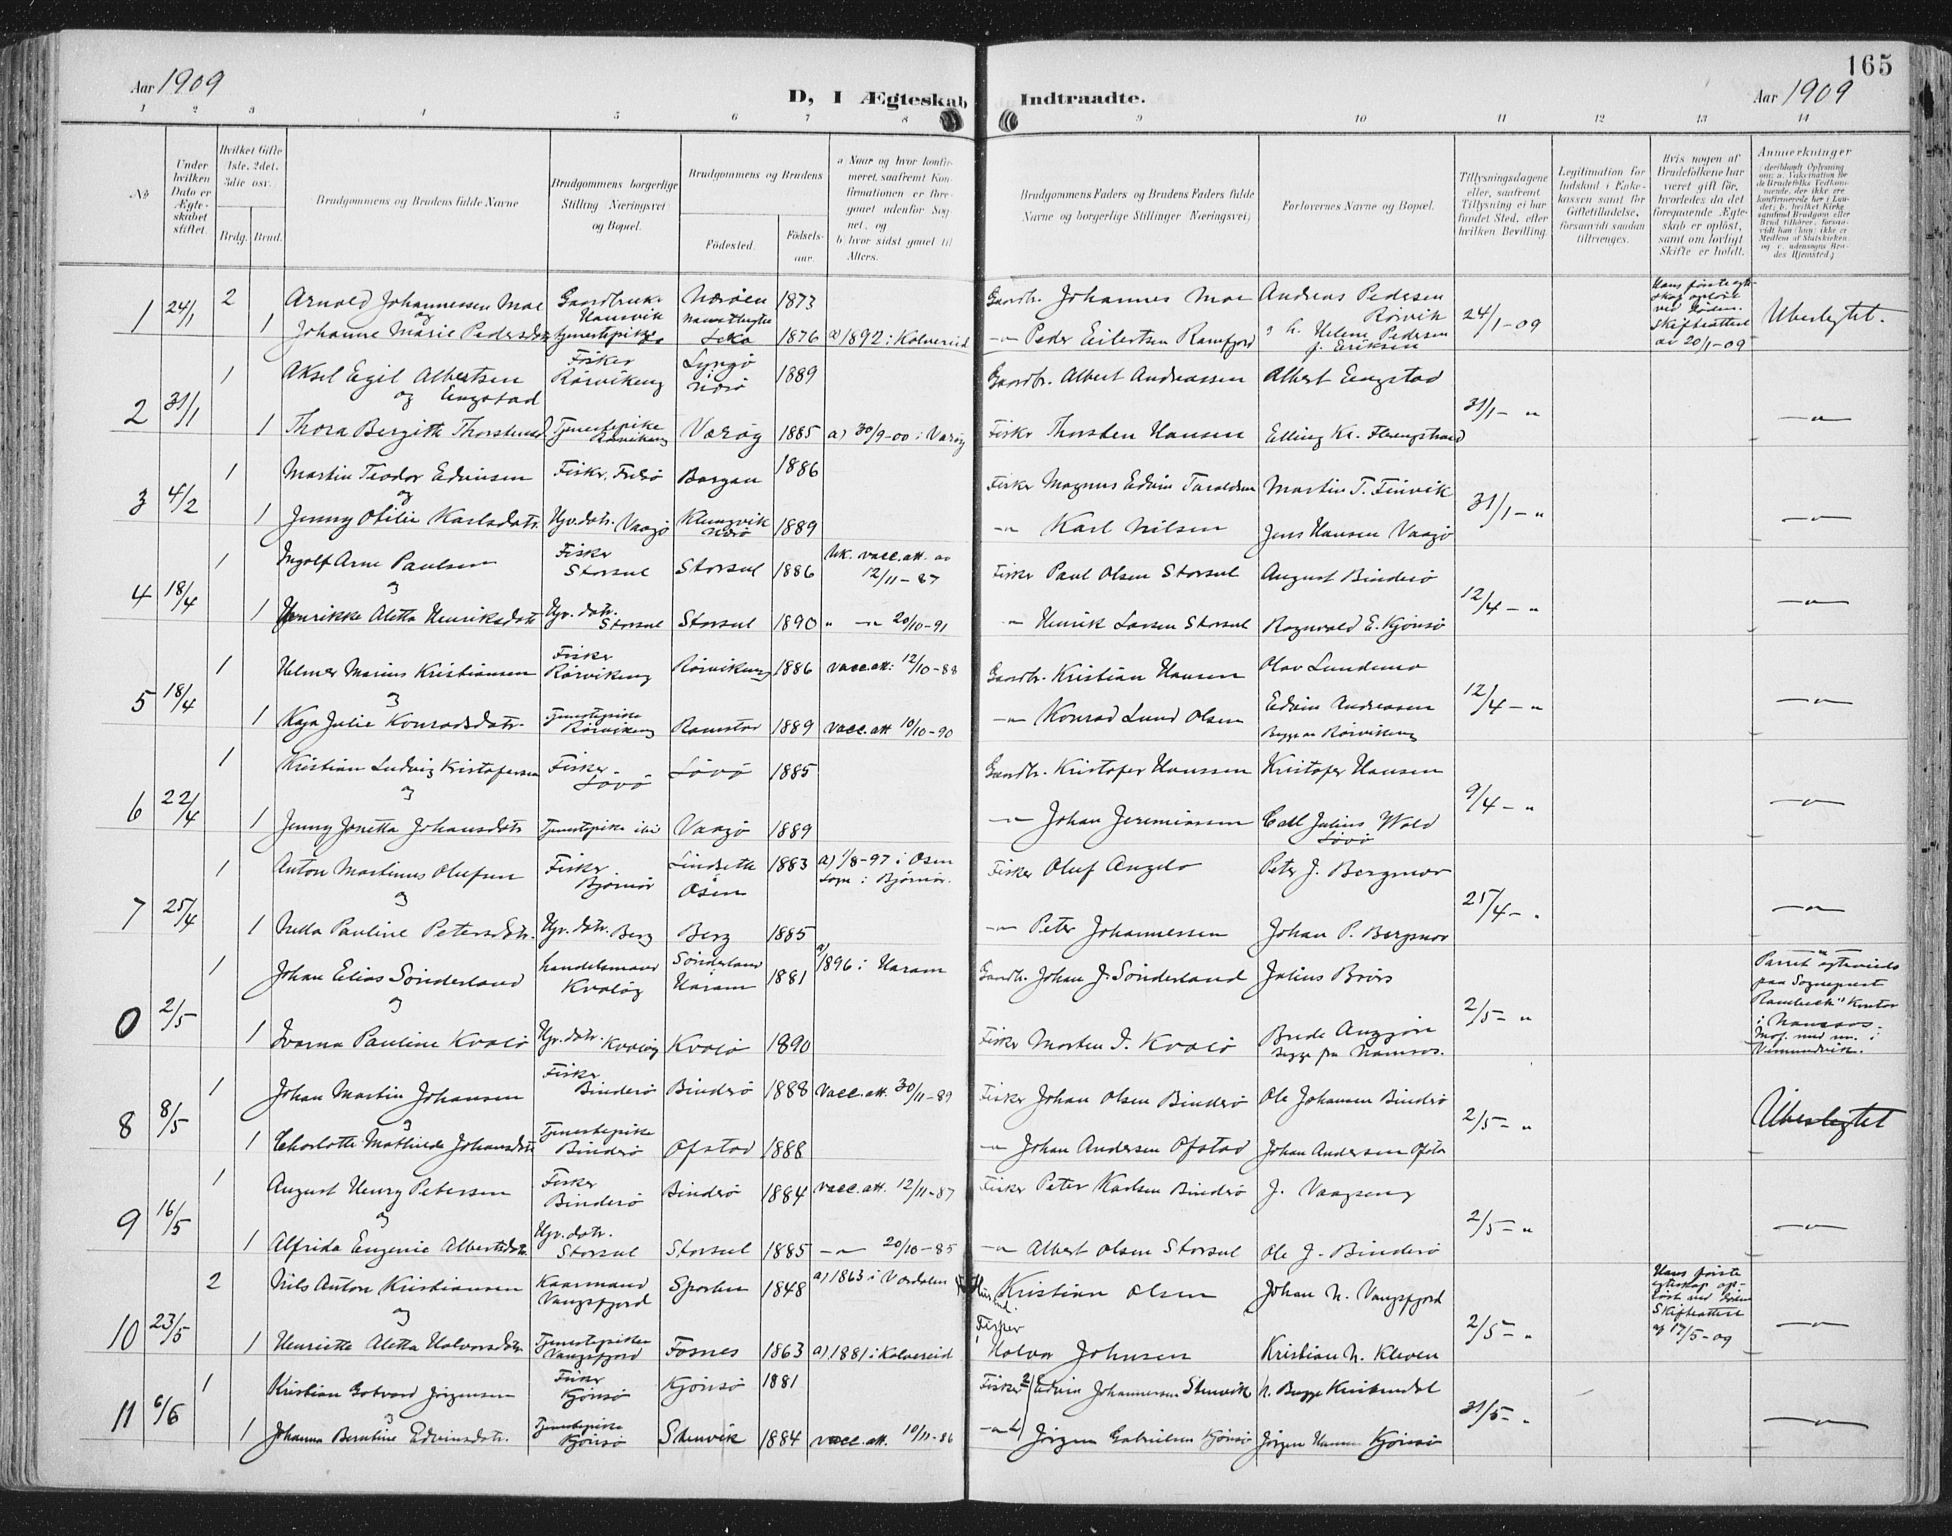 165
Aar 1909
D, I Ægteskab Indtraadte.
Aar 1909
1 2 3 4 5 6 7 8 9 10 11 12 13 14
No
Under hvilken Dato er Ægteskabet stiftet.
Hvilket Gifte 1ste, 2det, 3die osv.
Brdg. Brud.
Brudgommens og Brudens fulde Navne
Brudgommens borgerlige Stilling (Næringsvei) og Bopæl.
Brudgommens og Brudens
Fødested.
Fødselsaar.
a Naar og hvor konfirmeret, saafremt Konfirmationen er foregaaet udenfor Sognet, og
b hvor sidst gaaet til Alters.
Brudgommens Faders og Brudens Faders fulde Navne og borgerlige Stillinger (Næringsvei)
Forlovernes Navne og Bopæl.
Tillysningsdagene eller, saafremt Tillysning ei har fundet Sted, efter hvilken Bevilling.
Legitimation for Indskud i Enkekassen samt for Giftetilladelse, forsaavidt saadan tiltrænges.
Hvis nogen af Brudefolkene har været gift før, hvorledes da det foregaaende Ægteskab er opløst, samt om lovligt Skifte er holdt.
Anmerkninger
1 24/1 2 Arnold Johannessen Moe Gaardbruker Hamsvik Nærøen 1873 Gaardbr. Johannes Moe Andreas Pedersen Rörvik 24/1-09 Hans første egteskap opløst ved döden. Skifteattest av 20/1-09 Ubeslegtet.
og
1 Johanne Marie Pedersdatr. Tjenestepike Leka 1876 a) 1892 i Kolvereid -"- Peder Eilertsen Ramfjord Helene Pedersen f. Eriksen
2 31/1 1 Aksel Egil Albertsen Engstad Fisker Rörvikeng Lyngö 1889 Gaardbr. Albert Andreassen Albert Engstad 31/1- " -"-
og
1 Thora Bergitte Thorstensd. Tjenestepike Rörvikeng Værøy 1885 a) 30/9-00 i Værøy Fisker Thorsten Hansen Elling Kr. Flerengstrand
3 4/2 1 Martin Teodor Edvinsen Fisker, Finsö Borgan 1886 Fisker Magnus Edvin Taraldsen Martin T. Finvik 31/1- " -"-
og
1 Jenny Otilie Karlsdatr. Gjv. datr. Vaagö Klungvik 1889 -"- Karl Nilsen Jens Hansen Vaagö
4 18/4 1 Ingolf Arne Paulsen Fisker Storsul Storsul 1886 vacc. att. av 12/11-87 Fisker Paul Olsen Storsul August Binderö 12/4- " -"-
og
1 Henrikke Aletta Henriksdatr. Gjv. datr. Storsul Storsul 1890 " -"- 20/10-91 -"- Henrik Larsen Storsul Ragnvald E. Kjönsö
5 18/4 1 Helmer Marius Kristiansen Fisker Rörvikeng Rörvikeng 1886 vacc. att. 12/10-88 Gaardbr. Kristian Hansen Olav Lundemo 12/4- " -"-
og
1 Kaja Julie Konradsdatr. Tjenestepike Rörvikeng Ramstad 1889 vacc. att 10/10-90 -"- Konrad Lund Olsen Edvin Andreassen
Begge av Rörvikeng
6 22/4 1 Kristian Ludvig Kristofersen Fisker Lövö Lövö 1885 Gaardbr. Kristofer Hanssen Kristofer Hansen 9/4- " -"-
og
1 Jenny Jonetta Johansdatr. Tjenestepike ibid Vaagö 1889 -"- Johan Jeremiassen Carl Julius Wold Lövö
7 25/4 1 Anton Martinus Olufsen Fisker Bjørnør Lindseth Osen 1883 a) 1/8-97 i Osen Sogn i Bjørnør. Fisker Oluf Angelo Peter J. Bergmor 25/4- " -"-
og
1 Nella Pauline Petersdatr. Gjv. datr. Berg Berg 1885 -"- Peter Johannessen Johan P. Bergmor
0 2/5 1 Johan Elias Sönderland handelsmand Kvalöy Sönderland Haram 1881 a) 1896 i Haram Gaardbr. Johan J. Sönderland Julius Brörs 2/5- " Parret egteviedes paa Sogneprest Rambech's kontor i Namsos.
og
1 Ivarna Pauline Kvalö Gjv. datr. Kvalöy Kvalö 1890 Fisker Morten I. Kvalö Begge fra Namsos.
8 8/5 1 Johan Martin Johansen Fisker Binderö Binderö 1888 Vacc. att. 30/11-89 Fisker Johan Olsen Binderö Ole Johansen Binderö 2/5- " Ubeslegtet
og
1 Charlotte Mathilde Johansdatr. Tjenestepike Binderö Ofstad 1888 -"- Johan Andersen Ofstad Johan Andersen Ofstad
9 16/5 1 August Henry Petersen Fisker Binderö Binderö 1884 vacc. att. 12/11-87 Fisker Peter Karlsen Binderö J. Vaagseng 2/5- " -"-
og
1 Alfrida Eugenie Albertsdatr. Gjv. datr. Storsul Storsul 1885 -"- 20/10-85 -"- Albert Olsen Storsul Ole J. Binderö
10 23/5 2 Nils Anton Kristiansen Kaarmand Vangsfjord Sparbu 1848 a) 1863 i Værdalen Kristian Olsen Johan N. Vangsfjord 2/5- " Hans første egteskap opløst ved döden Skifteattest af 17/5-09 -"-
og
1 Henriette Aletta Halvorsdatr. Tjenestepike Vangsfjord Fosnes 1863 a) 1881 i Kolvereid Fisker Halvor Johnsen Kristian N. Kleven
11 6/6 1 Kristian Gotvard Jörgensen Fisker Kjönsö Kjönsö 1881 Fisker Edvin Johannessen Stenvik 31/5- " -"-
og
1 Johanna Berntine Edvinsdatr. Tjenestepike Kjönsö Stenvik 1884 vacc. att. 10/11-86 -"- Jörgen Gabrielsen Kjönsö Jörgen Hansen Kjönsö